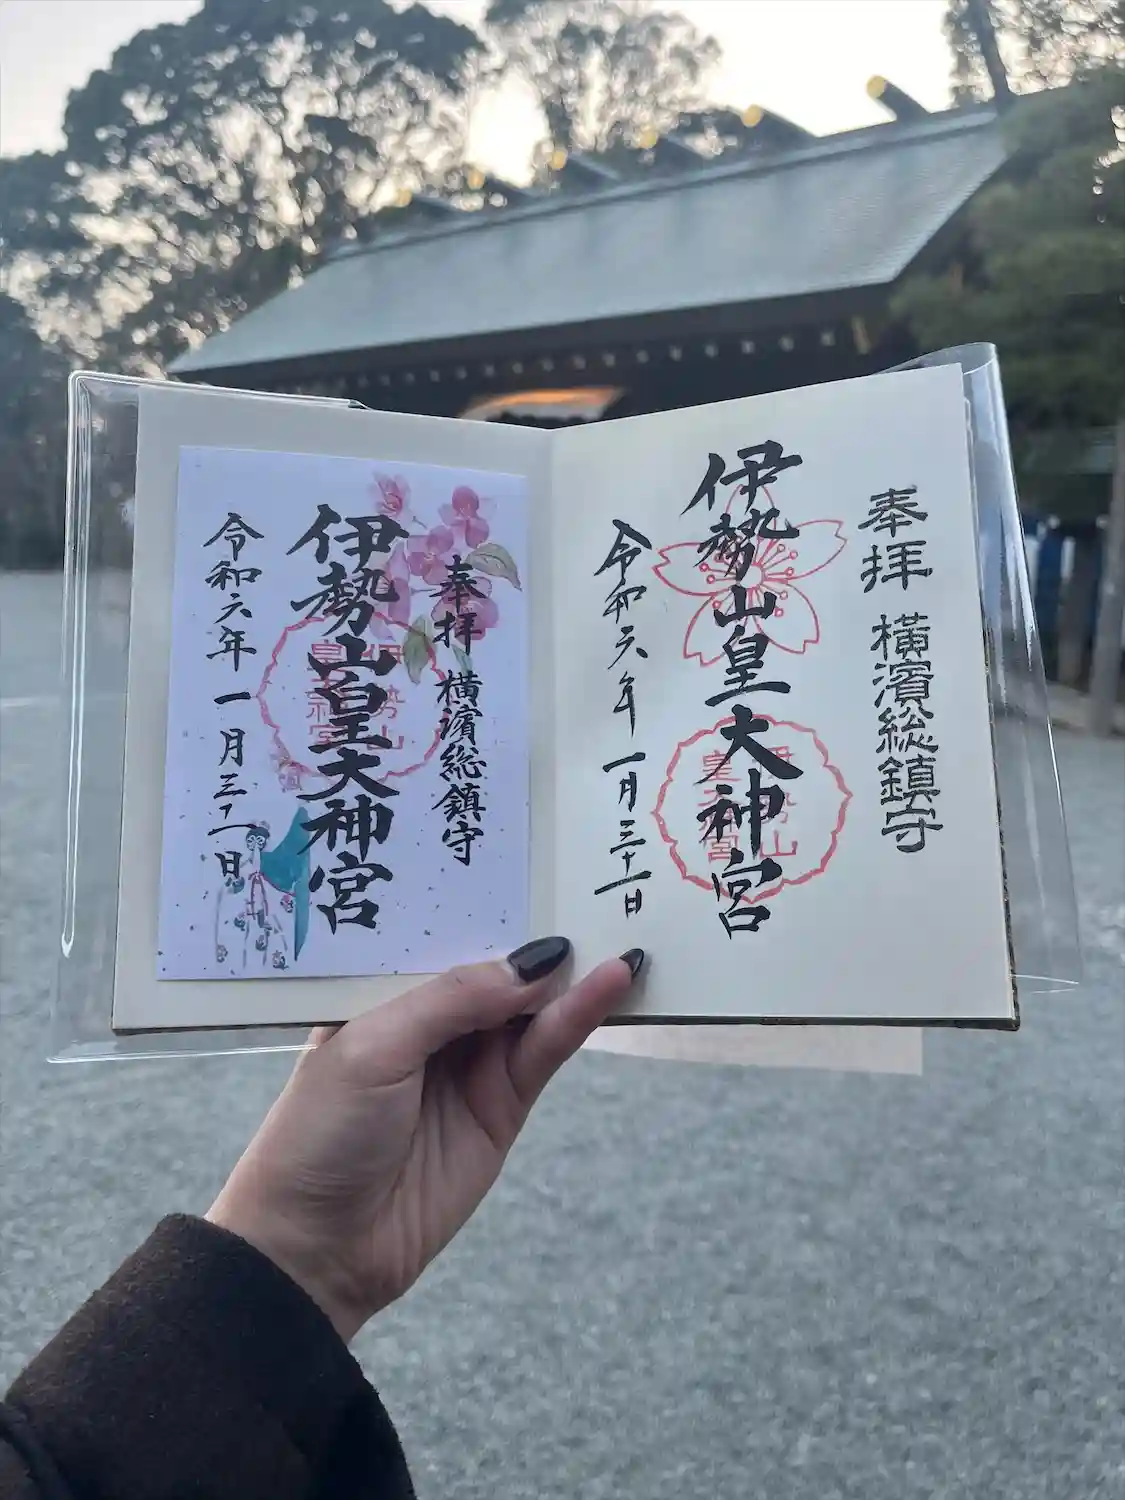 奉拝 横濱総鎮守
伊勢山皇大神宮
令和六年一月三十一日
伊勢山
皇大神宮
奉拝 横濱総鎮守
伊勢山皇大神宮
令和六年一月三十一日
伊勢山
皇大神宮